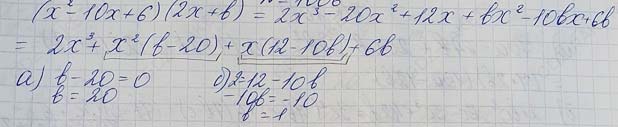 (x²-10x+6)(2x+b) = 2x³-20x²+12x+bx²-10bx+6b
= 2x³+x²(b-20)+x(12-10b)+6b
а) b-20=0 б) 2=12-10b
b=20 -10b=-10
b=1